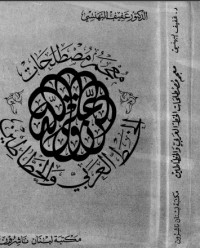 الدكتور عفيف البهنسي
معجم مصطلحات
الخط العربي والخطاطين
مكتبة لبنان ناشرون
د. عفيف البهنسي
معجم مصطلحات الخط العربي والخطاطين
مكتبة لبنان ناشرون